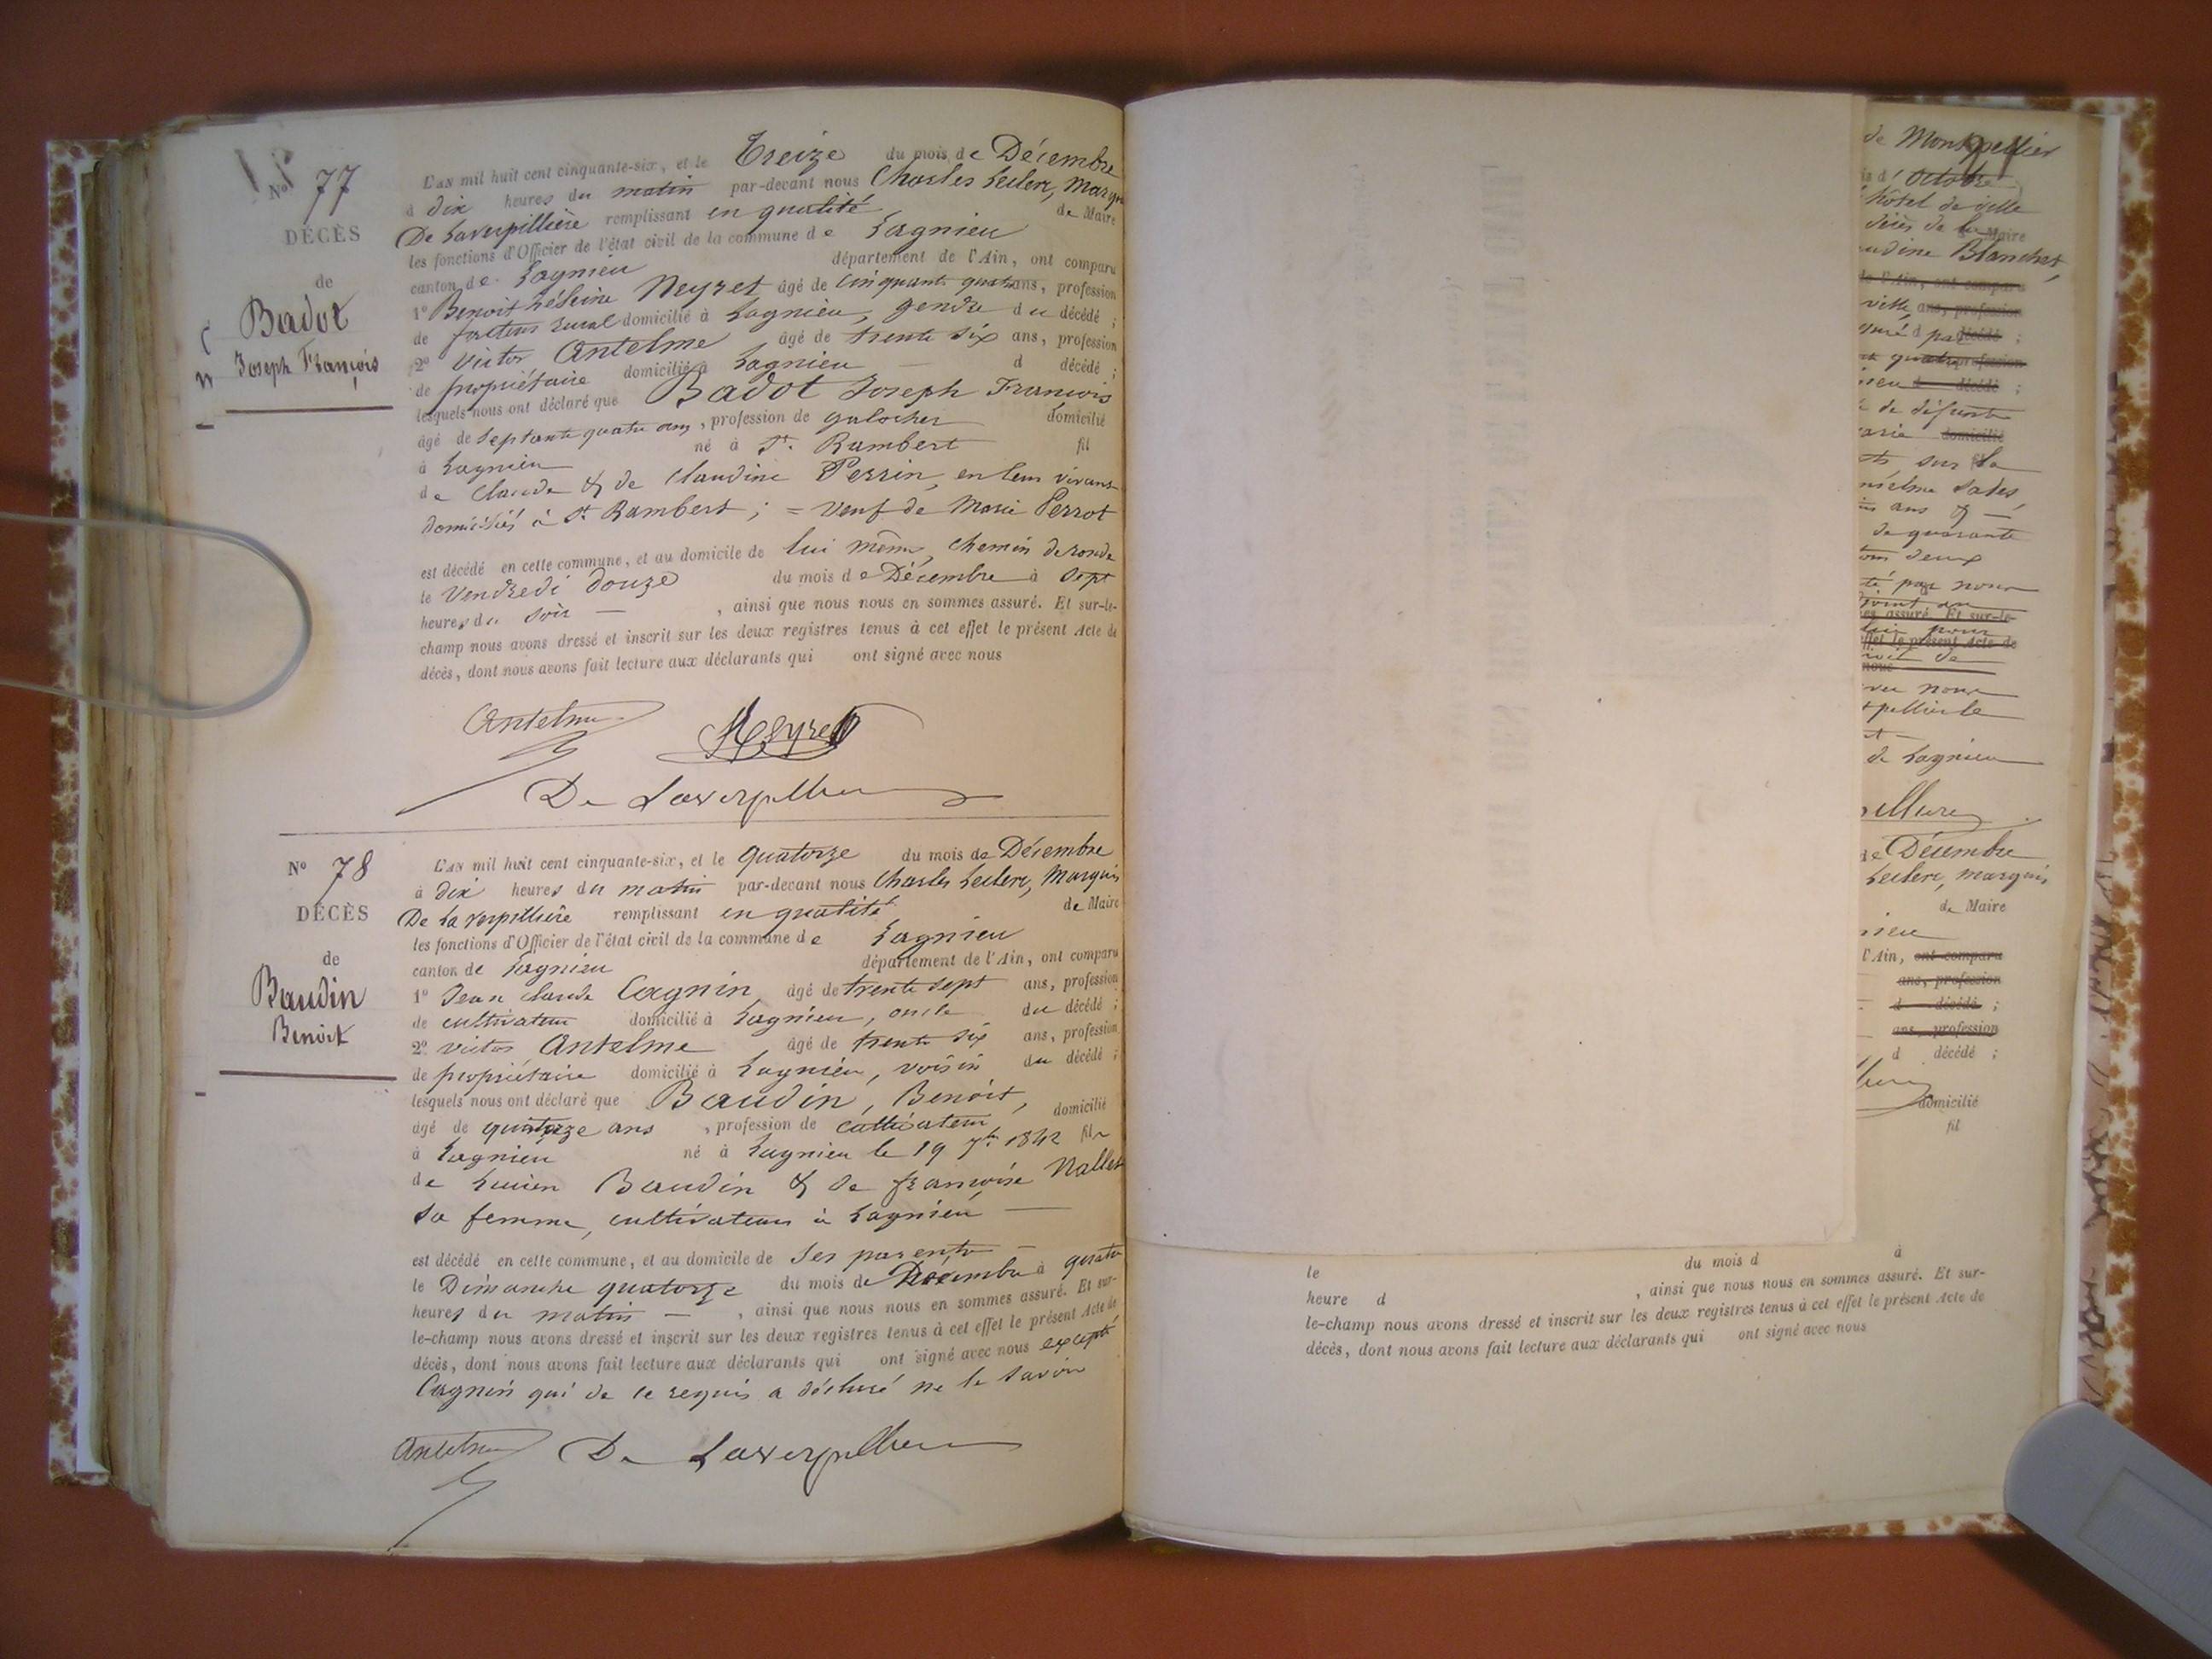 N° 77
DÉCÈS
de
Badot
Joseph François
L'AN mil huit cent cinquante-six, et le Treize du mois de Décembre
à dix heures du matin par-devant nous Charles Leclerc, Marquis
De Laverpillière remplissant en qualité de Maire
les fonctions d'Officier de l'état civil de la commune de Lagnieu
canton de Lagnieu département de l'Ain, ont comparu
1° Benoit Neyret âgé de cinquante quatre ans, profession
de facteur rural domicilié à Lagnieu, gendre du décédé ;
2° Victor Antelme âgé de trente six ans, profession
de propriétaire domicilié à Lagnieu d décédé ;
lesquels nous ont déclaré que Badot Joseph François
âgé de septante quatre ans, profession de galocher domicilié
à Lagnieu né à St. Rambert fil
de Claude & de Claudine Perrin, en leur vivant
domiciliés à St Rambert ; = veuf de Marie Perrot
est décédé en cette commune, et au domicile de lui même, chemin de ronde
le Vendredi douze du mois de Décembre à sept
heures du soir — , ainsi que nous nous en sommes assuré. Et sur-le-
champ nous avons dressé et inscrit sur les deux registres tenus à cet effet le présent Acte de
décès, dont nous avons fait lecture aux déclarants qui ont signé avec nous
Antelme Neyret
De Laverpilliere
N° 78
DÉCÈS
de
Baudin
Benoit
L'AN mil huit cent cinquante-six, et le quatorze du mois de Décembre
à dix heures du matin par-devant nous Charles Leclerc, Marquis
De Laverpillière remplissant en qualité de Maire
les fonctions d'Officier de l'état civil de la commune de Lagnieu
canton de Lagnieu département de l'Ain, ont comparu
1° Jean Claude Cagnin, âgé de trente sept ans, profession
de cultivateur domicilié à Lagnieu, oncle du décédé ;
2° Victor Antelme âgé de trente six ans, profession
de propriétaire domicilié à Lagnieu, voisin du décédé ;
lesquels nous ont déclaré que Baudin, Benoit,
âgé de quatorze ans , profession de cultivateur domicilié
à Lagnieu né à Lagnieu le 19 7bre 1842 fils
de Lucien Baudin & de françoise Nallet
sa femme, cultivateurs à Lagnieu —
est décédé en cette commune, et au domicile de ses parents —
le Dimanche quatorze du mois de Décembre à quatre
heures du matin — , ainsi que nous nous en sommes assuré. Et sur-
le-champ nous avons dressé et inscrit sur les deux registres tenus à cet effet le présent Acte de
décès, dont nous avons fait lecture aux déclarants qui ont signé avec nous excepté
Cagnin qui de ce requis a déclaré ne le savoir
Antelme De Laverpilliere
de Montpellier
d'Octobre
hôtel de ville
décès de la Maire
Blanchet,
de l'Ain, ont comparu
ville ans, profession
décédé ;
profession
décédé ;
de défunte
domicilié
sur la
ans &
de quarante
deux
par nous
assuré Et sur-le-
pour
effet le présent Acte de
de
nous
nous
de Lagnieu
de Décembre
Leclerc, marquis
de Maire
l'Ain, ont comparu
ans, profession
d décédé ;
ans, profession
d décédé ;
domicilié
fil
le du mois d à
heure d , ainsi que nous nous en sommes assuré. Et sur-
le-champ nous avons dressé et inscrit sur les deux registres tenus à cet effet le présent Acte de
décès, dont nous avons fait lecture aux déclarants qui ont signé avec nous